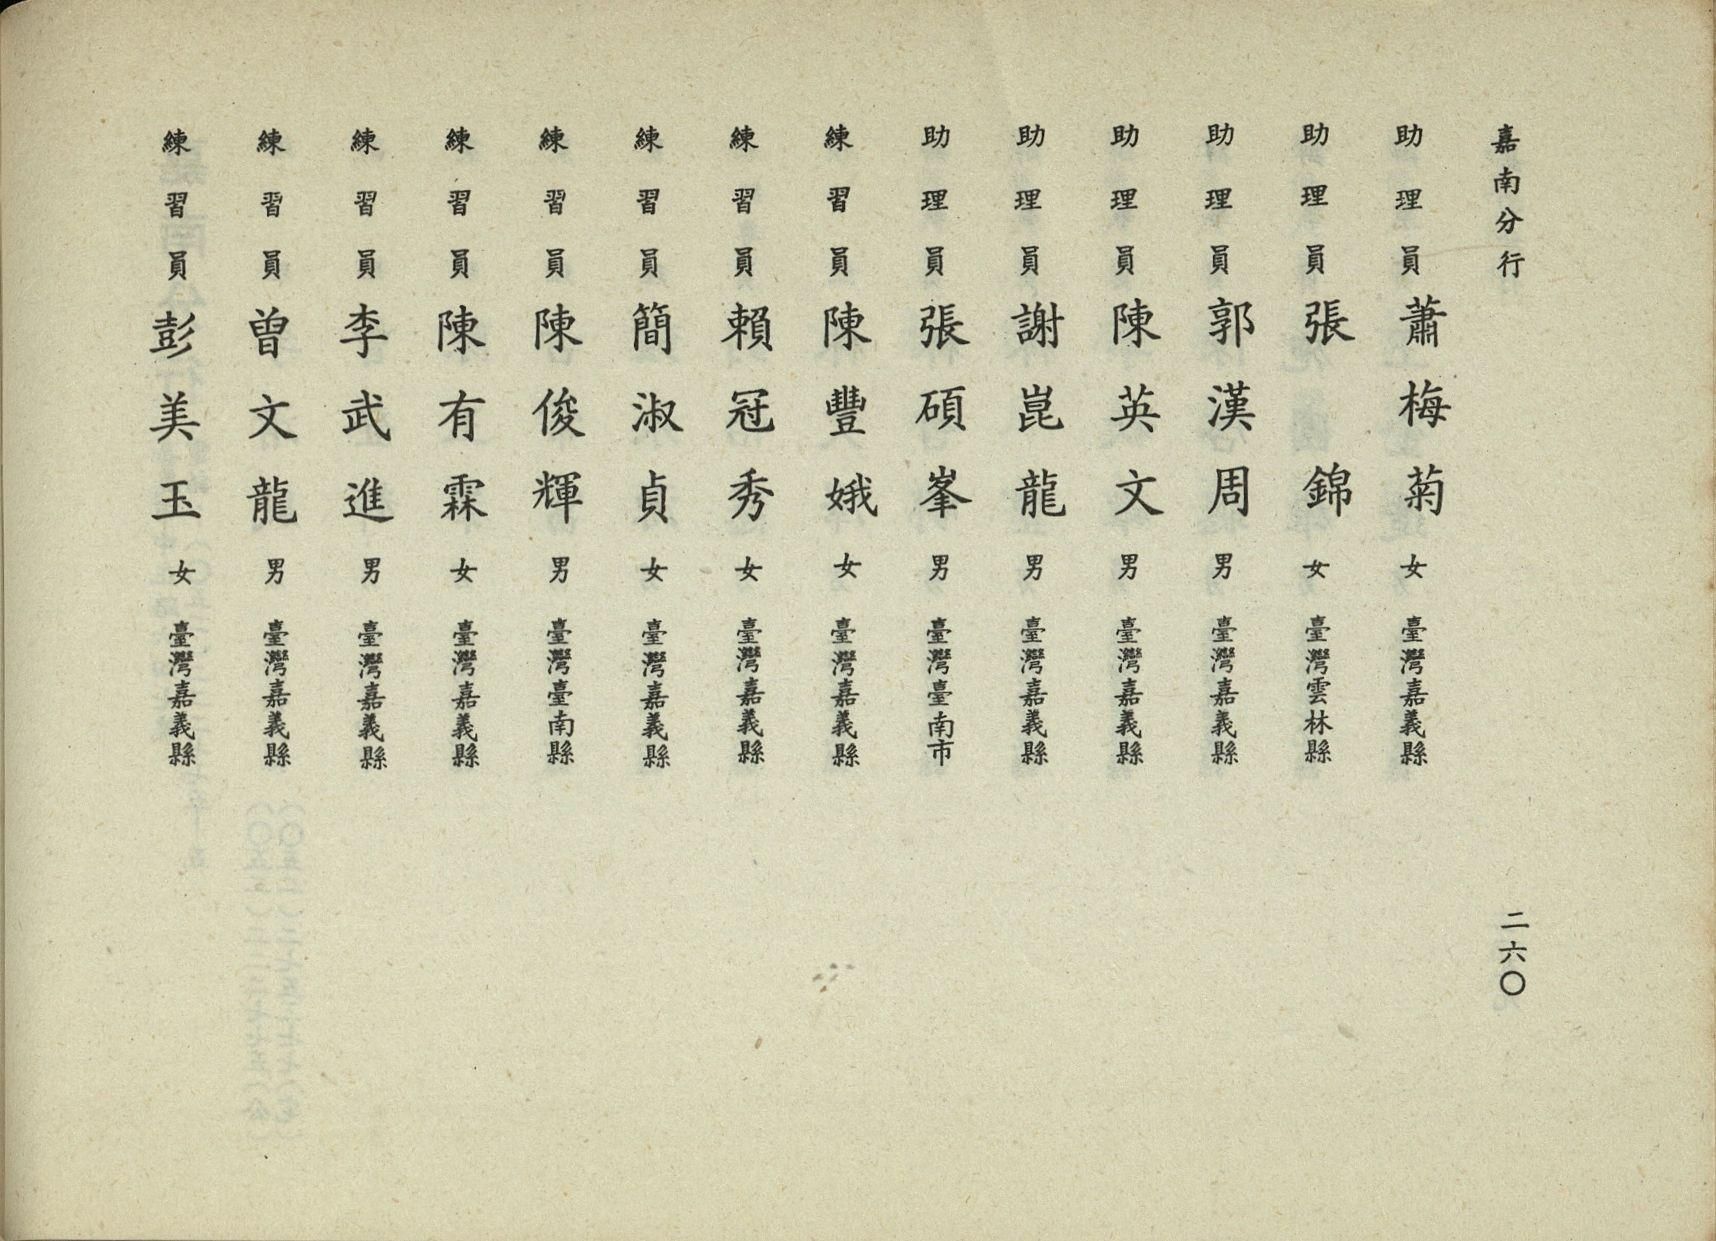 嘉南分行
二六〇
助理員 蕭梅菊 女 臺灣嘉義縣
助理員 張錦 女 臺灣雲林縣
助理員 郭漢周 男 臺灣嘉義縣
助理員 陳英文 男 臺灣嘉義縣
助理員 謝崑龍 男 臺灣嘉義縣
助理員 張碩峯 男 臺灣臺南市
練習員 陳豐娥 女 臺灣嘉義縣
練習員 賴冠秀 女 臺灣嘉義縣
練習員 簡淑貞 女 臺灣嘉義縣
練習員 陳俊輝 男 臺灣臺南縣
練習員 陳有霖 女 臺灣嘉義縣
練習員 李武進 男 臺灣嘉義縣
練習員 曾文龍 男 臺灣嘉義縣
練習員 彭美玉 女 臺灣嘉義縣